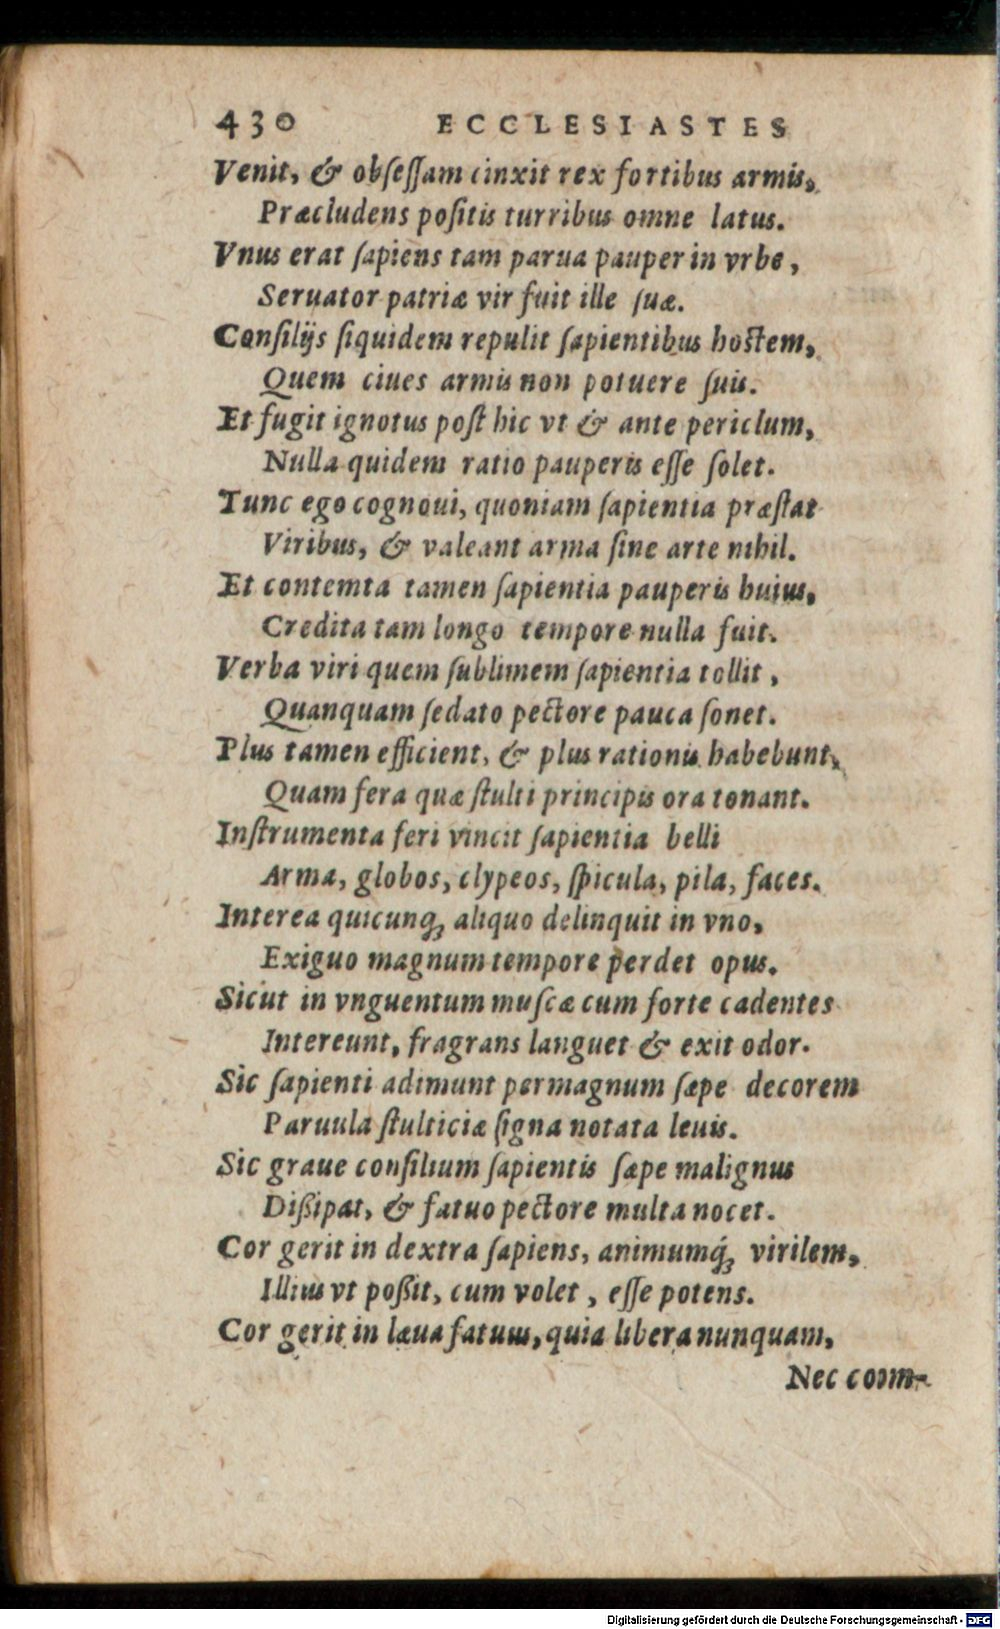 430 ECCLESIASTES
Venit, & obſeſſam cinxit rex fortibus armis,
Præcludens poſitis turribus omne latus.
Vnus erat ſapiens tam parua pauper in vrbe,
Seruator patriæ vir fuit ille ſuæ.
Conſilijs ſiquidem repulit ſapientibus hoſtem,
Quem ciues armis non potuere ſuis.
Et fugit ignotus poſt hic vt & ante periclum,
Nulla quidem ratio pauperis eſſe ſolet.
Tunc ego cognoui, quoniam ſapientia præſtat
Viribus, & valeant arma ſine arte nihil.
Et contemta tamen ſapientia pauperis huius,
Credita tam longo tempore nulla fuit.
Verba viri quem ſublimem ſapientia tollit,
Quanquam ſedato pectore pauca ſonet.
Plus tamen efficient, & plus rationis habebunt,
Quam fera quæ ſtulti principis ora tonant.
Inſtrumenta feri vincit ſapientia belli
Arma, globos, clypeos, ſpicula, pila, faces.
Interea quicunq; aliquo delinquit in vno,
Exiguo magnum tempore perdet opus.
Sicut in vnguentum muſcæ cum forte cadentes
Intereunt, fragrans languet & exit odor.
Sic ſapienti adimunt permagnum ſæpe decorem
Paruula ſtulticiæ ſigna notata leuis.
Sic graue conſilium ſapientis ſæpe malignus
Dißipat, & fatuo pectore multa nocet.
Cor gerit in dextra ſapiens, animumq́; virilem,
Illius vt poßit, cum volet, eſſe potens.
Cor gerit in læua fatuus, quia libera nunquam,
Nec com-
Digitalisierung gefördert durch die Deutsche Forschungsgemeinschaft - DFG